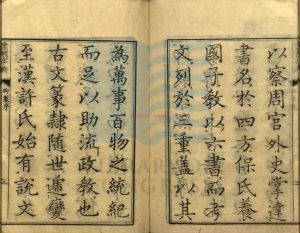 以察周官外史掌達
書名於四方保氏養
國子教以六書而考
文列於三重蓋以其
為萬事百物之統紀
而足以助流政教也
古文篆隸隨世遞變
至漢許氏始有說文
康熙字典 御製序